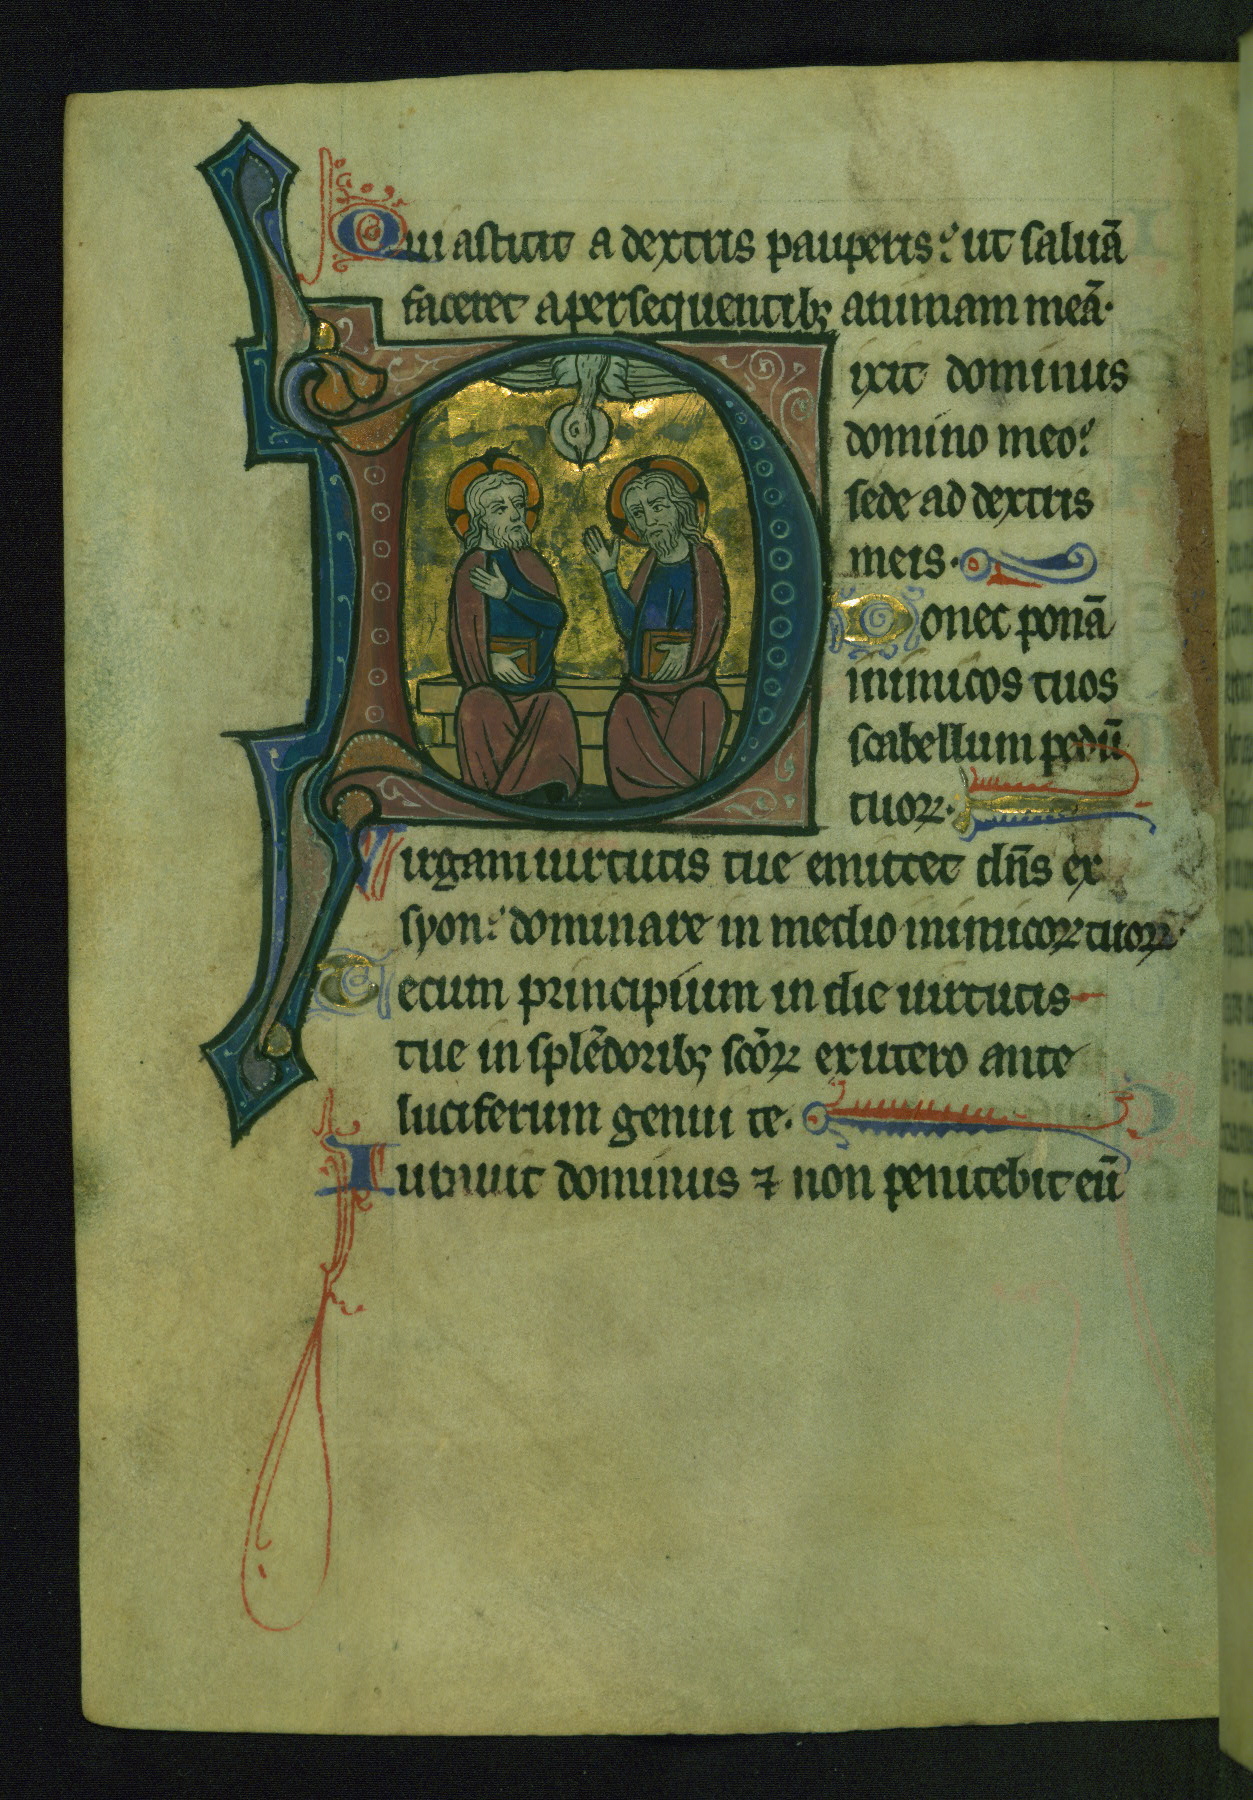 Qui astitit a dextris pauperis: ut saluā
faceret a persequentibꝫ animam meā.
Dixit dominus
domino meo:
sede ad dextris
meis.
Donec ponā
inimicos tuos
scabellum pedū
tuoꝝ.
Uirgam uirtutis tue emittet dn̄s ex
syon: dominare in medio inimicoꝝ tuoꝝ.
Tecum principium in die uirtutis
tue in splēdoribꝫ scōꝝ ex utero ante
luciferum genui te.
Iurauit dominus ⁊ non penitebit eū